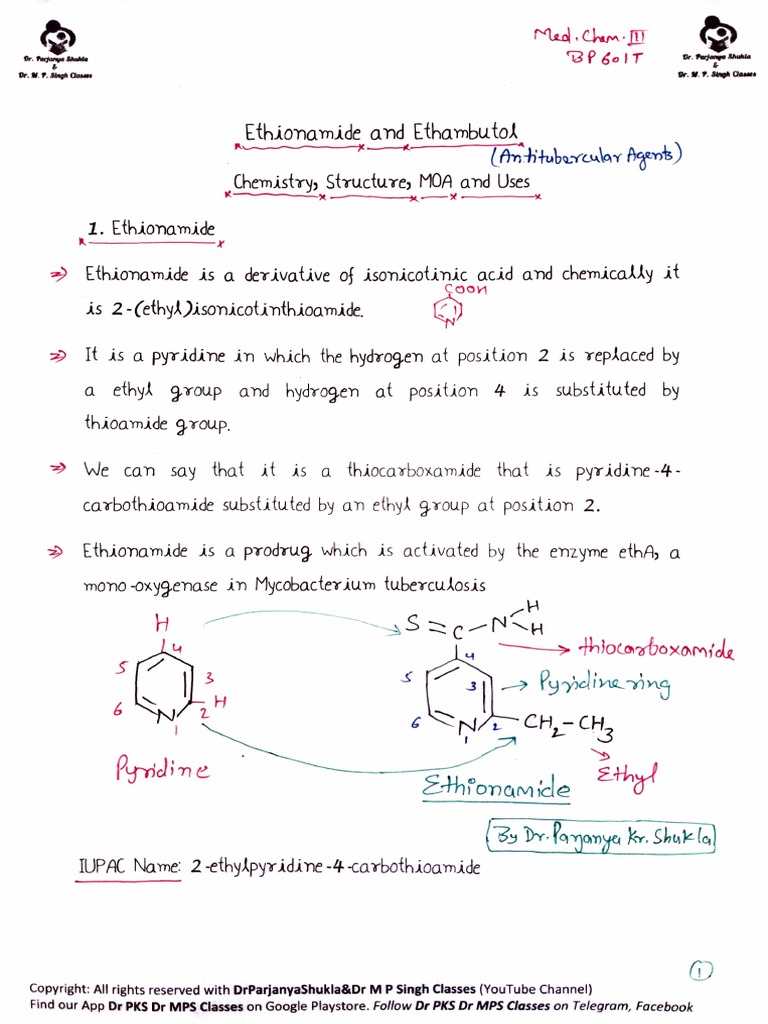 Dr. Parjanya Shukla
&
Dr. M. P. Singh Classes
Med. Chem. III
BP601T
Dr. Parjanya Shukla
&
Dr. M. P. Singh Classes
Ethionamide and Ethambutol
(Antitubercular Agents)
Chemistry, Structure, MOA and Uses
1. Ethionamide
⇒ Ethionamide is a derivative of isonicotinic acid and chemically it
is 2-(ethyl)isonicotinthioamide.
COOH
N
⇒ It is a pyridine in which the hydrogen at position 2 is replaced by
a ethyl group and hydrogen at position 4 is substituted by
thioamide group.
⇒ We can say that it is a thiocarboxamide that is pyridine-4-
carbothioamide substituted by an ethyl group at position 2.
⇒ Ethionamide is a prodrug which is activated by the enzyme ethA, a
mono-oxygenase in Mycobacterium tuberculosis
H
4
5
3
6
N
1
2
H
Pyridine
S=C-N
H
H
thiocarboxamide
4
5
3
Pyridine ring
6
N
1
2
CH2-CH3
Ethyl
Ethionamide
By Dr. Parjanya Kr. Shukla
IUPAC Name: 2-ethylpyridine-4-carbothioamide
1
Copyright: All rights reserved with DrParjanyaShukla&Dr M P Singh Classes (YouTube Channel)
Find our App Dr PKS Dr MPS Classes on Google Playstore. Follow Dr PKS Dr MPS Classes on Telegram, Facebook